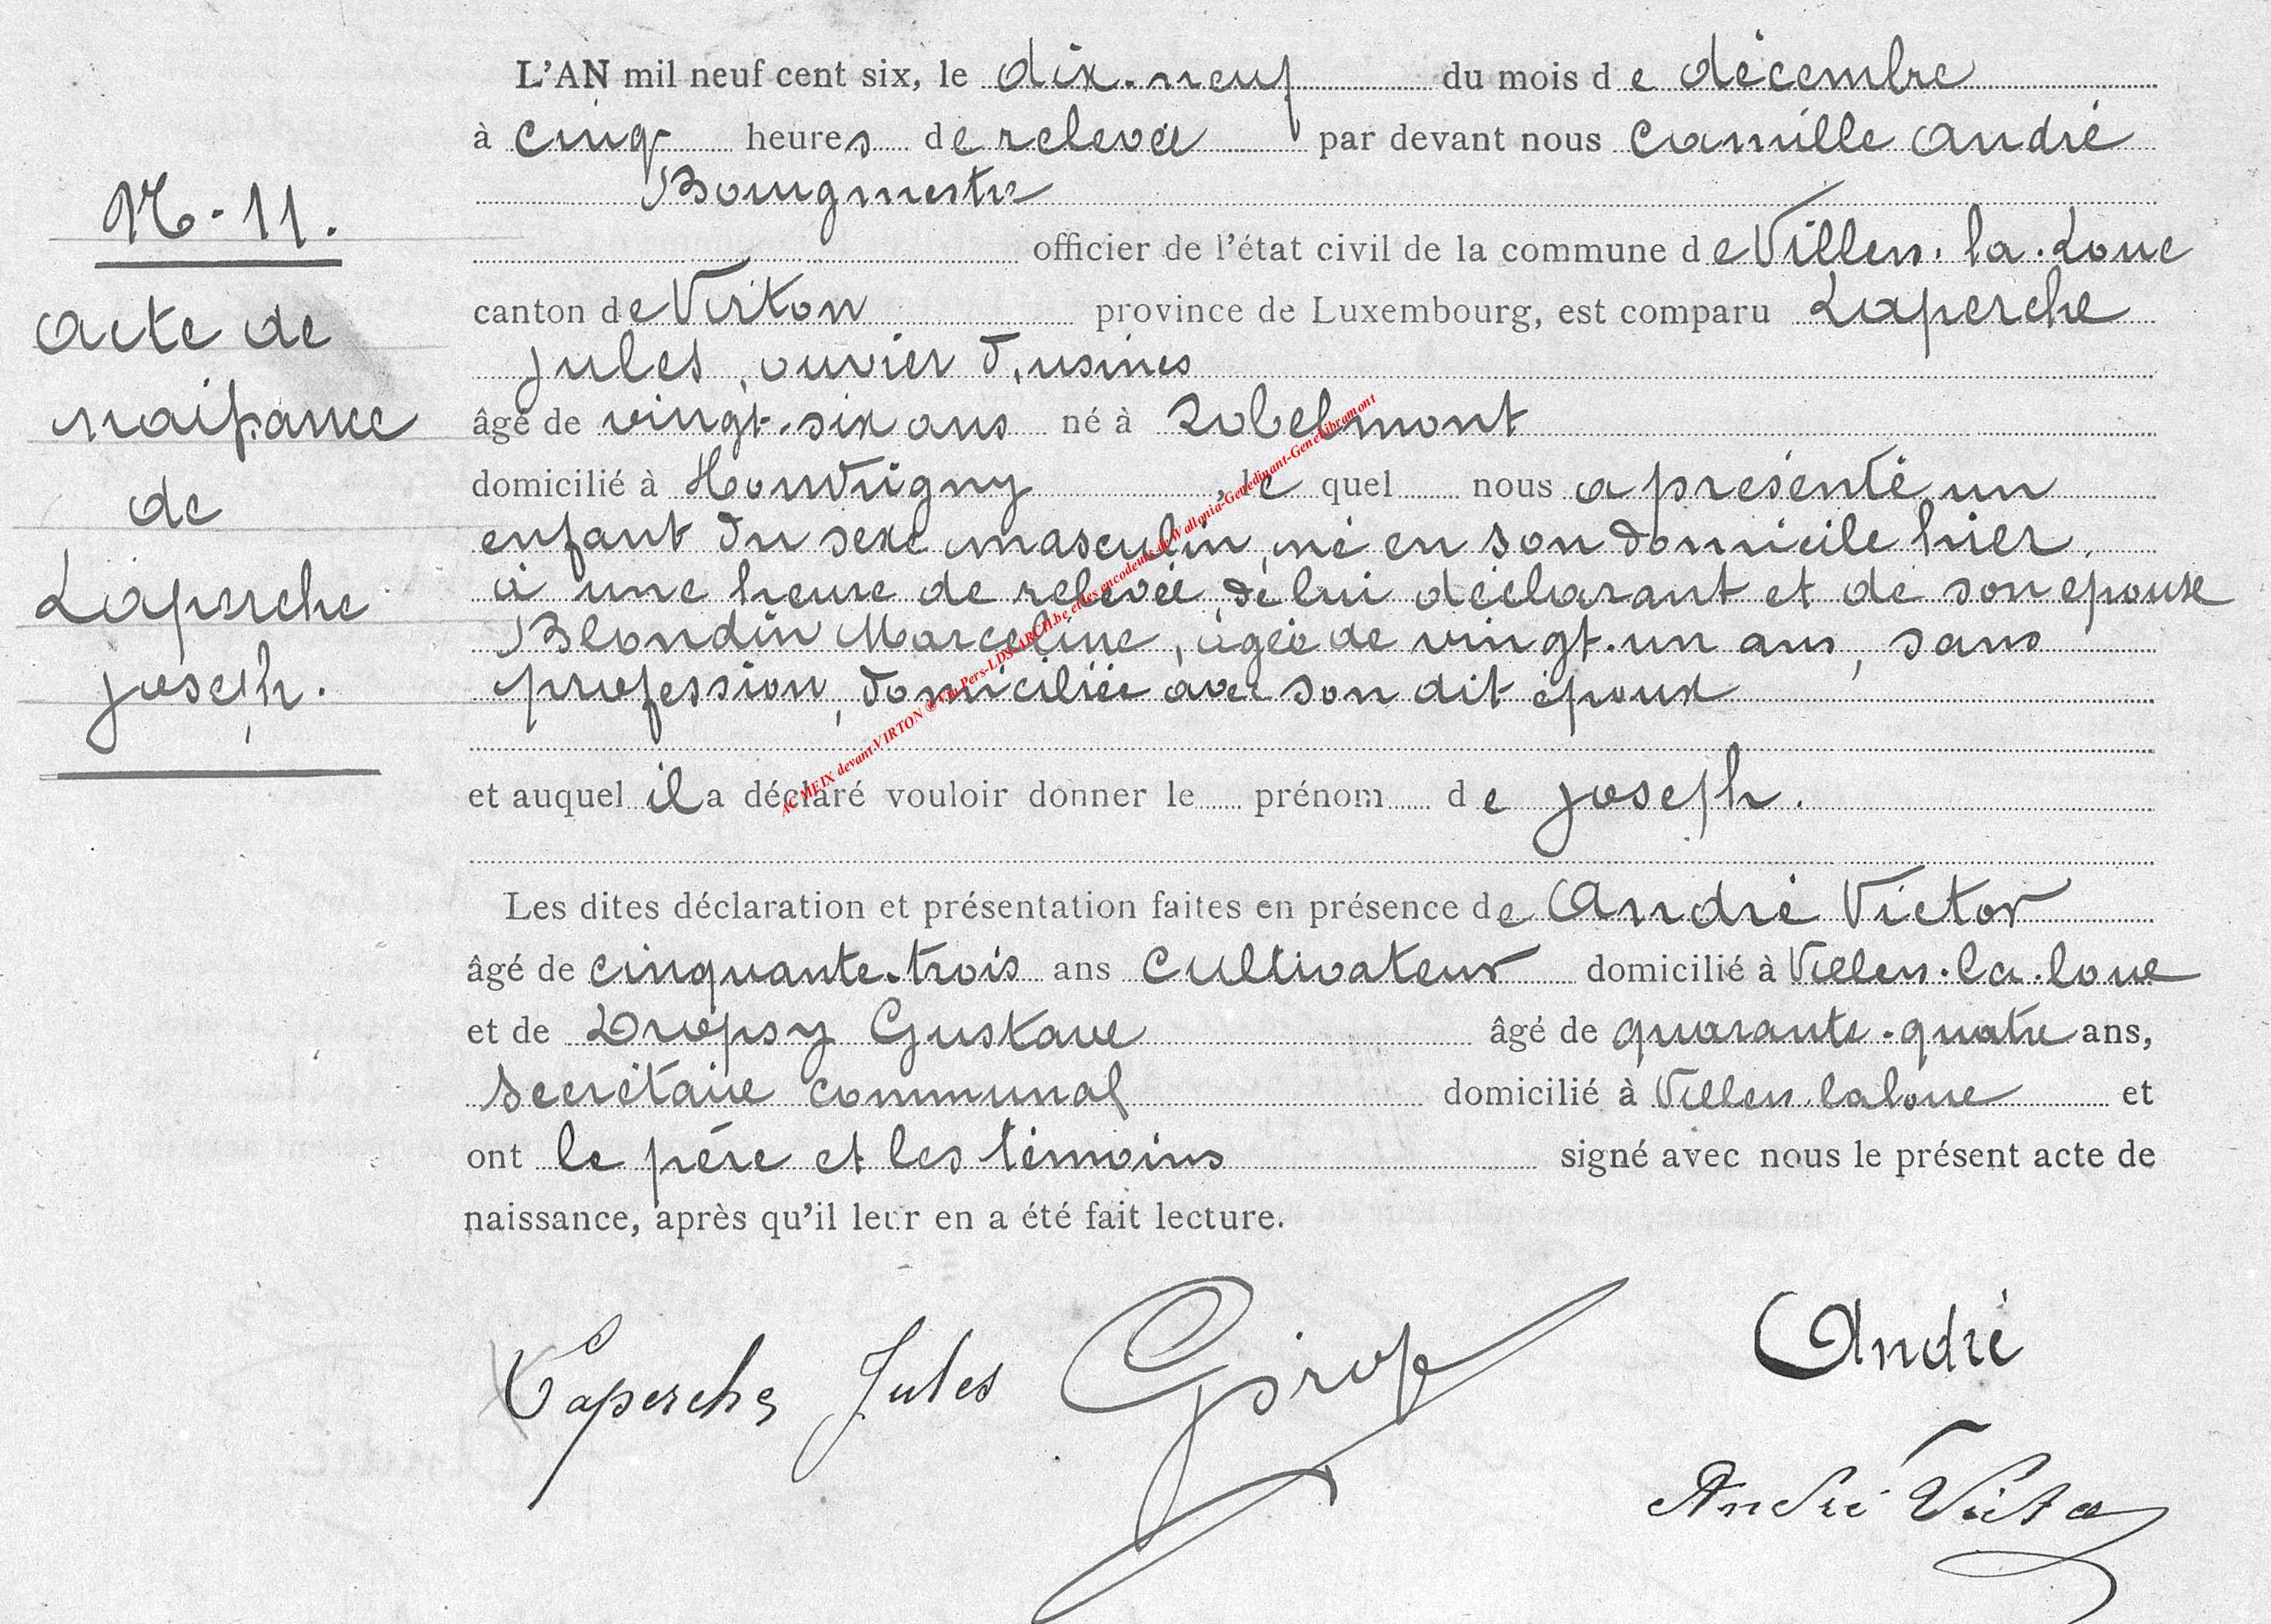 L'AN mil neuf cent six, le dix-neuf du mois de décembre
à cinq heures de relevée par devant nous Camille André
Bourgmestre
N°-11.
officier de l'état civil de la commune de Villers-la-Loue
canton de Virton province de Luxembourg, est comparu Laperche
Acte de
Jules, ouvrier d'usines
naissance
âgé de vingt-six ans né à Robelmont
de
domicilié à Houdrigny, le quel nous a présenté un
enfant du sexe masculin, né en son domicile hier
Laperche
à une heure de relevée, de lui déclarant et de son épouse
Blondin Marceline, âgée de vingt-un ans, sans
Joseph.
profession, domiciliée avec son dit époux
et auquel il a déclaré vouloir donner le prénom de Joseph.
Les dites déclaration et présentation faites en présence de André Victor
âgé de cinquante-trois ans cultivateur domicilié à Villers-la-loue
et de Dropsy Gustave âgé de quarante-quatre ans,
secrétaire communal domicilié à Villers-laloue et
ont le père et les témoins signé avec nous le présent acte de
naissance, après qu'il leur en a été fait lecture.
André
Laperche Jules
André Victor
AC MEIX devant VIRTON © Via Pers-LDS-ARCH.be et les encodeurs de Wallonia-Genedinant-GeneLibramont